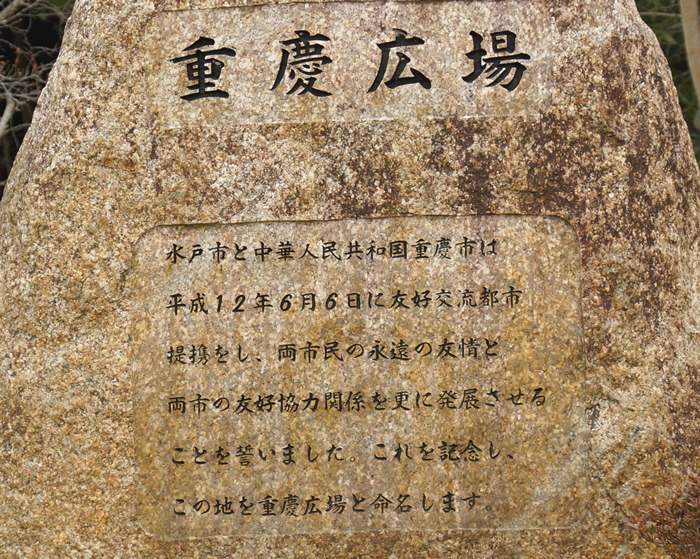 重慶広場
水戸市と中華人民共和国重慶市は
平成12年6月6日に友好交流都市
提携をし、両市民の永遠の友情と
両市の友好協力関係を更に発展させる
ことを誓いました。これを記念し、
この地を重慶広場と命名します。